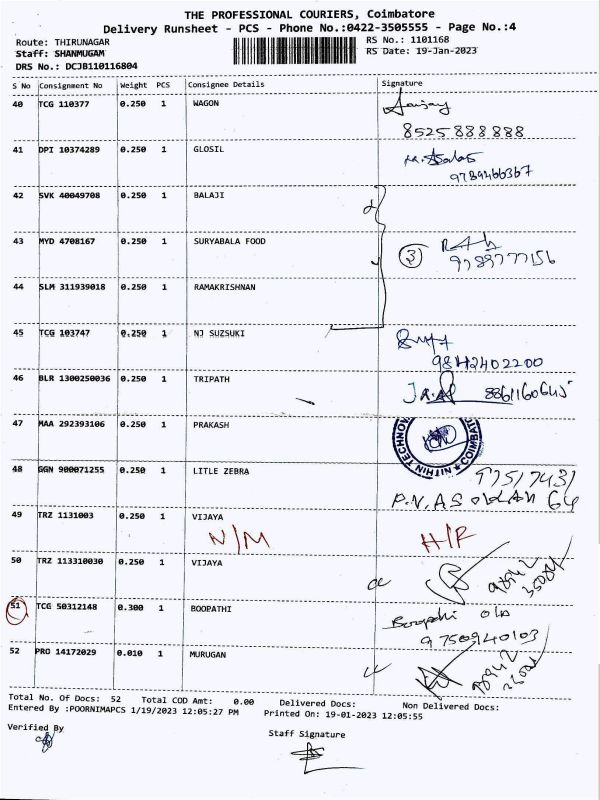 THE PROFESSIONAL COURIERS, Coimbatore
Delivery Runsheet - PCS - Phone No.:0422-3505555 - Page No.:4
Route: THIRUNAGAR RS No.: 1101168
Staff: SHANMUGAM RS Date: 19-Jan-2023
DRS No.: DCJB110116804
S No Consignment No Weight PCS Consignee Details Signature
40 TCG 110377 0.250 1 WAGON
8525888888
41 DPI 10374289 0.250 1 GLOSIL
9789466367
42 SVK 40049708 0.250 1 BALAJI
43 MYD 4708167 0.250 1 SURYABALA FOOD 3
9789777156
44 SLM 311939018 0.250 1 RAMAKRISHNAN
45 TCG 103747 0.250 1 NJ SUZSUKI
9842402200
46 BLR 1300250036 0.250 1 TRIPATH
47 MAA 292393106 0.250 1 PRAKASH
NITHIN TECHNOV COIMBAT
48 GGN 900071255 0.250 1 LITLE ZEBRA
P.V.ASOKAN
49 TRZ 1131003 0.250 1 VIJAYA
N/M
50 TRZ 113310030 0.250 1 VIJAYA
51 TCG 50312148 0.300 1 BOOPATHI
9750940103
52 PRO 14172029 0.010 1 MURUGAN
Total No. Of Docs: 52 Total COD Amt: 0.00 Delivered Docs: Non Delivered Docs:
Entered By :POORNIMAPCS 1/19/2023 12:05:27 PM Printed On: 19-01-2023 12:05:55
Verified By Staff Signature